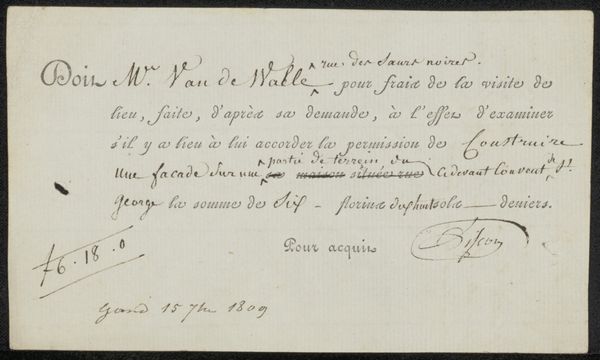 rue des Sœurs noires.
Doit Mr. Van de Walle pour frais de la visite de
lieu, faite, d'après sa demande, à l'effet d'examiner
s'il y a lieu à lui accorder la permission de Construire
partie de terrein, du
Une facade sur une sa maison située rue Cidevant Couvent de St.
George la somme de Six – florins dix huit sols — deniers.
Pour acquit
f 6 . 18 . 0
Gand 15 7bre 1809